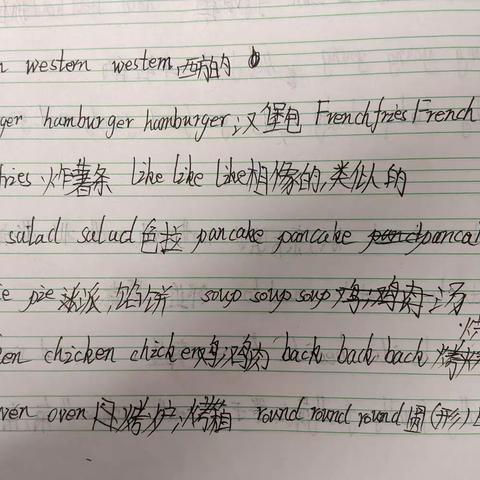 n western western 西方的
ger hamburger hamburger 汉堡包 Frenchfries French
fries 炸薯条 like like like 相像的,类似的
salad salad 色拉 pancake pancake pancai
ie pie 派,馅饼 soup soup soup 汤
en chicken chicken 鸡;鸡肉 back back back 烤
ven oven 烤炉;烤箱 round round round 圆(形)